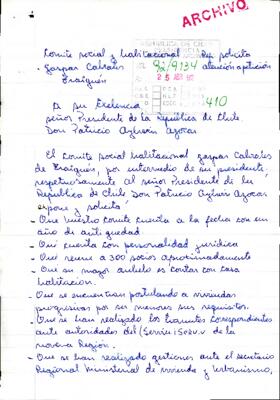 ARCHIVO
Comité social y habitacional Ref. solicita
Gaspar Cabrales atención a petición
Traiguén
REPUBLICA DE CHILE
92/9134
25 ABR 92
410
A su Exelencia
señor Presidente de la República de Chile.
Don Patricio Aylwin Azocar
El Comité social habitacional Gaspar Cabrales
de Traiguén, por intermedio de su presidente,
respetuosamente al señor Presidente de la
República de Chile Don Patricio Aylwin Azocar
expone y solicita:
- Que nuestro comité cuenta a la fecha con un
año de antiguedad
- Que cuenta con personalidad jurídica
- Que reune a 300 socios aproximadamente
- Que su mayor anhelo es contar con casa
habitación.
- Que se encuentran postulando a viviendas
progresivas por ser menores sus requisitos.
- Que se han realizado los trámites correspondientes
ante autoridades del (Serviu) de la
novena Región.
- Que se han realizado gestiones ante el secretario
Regional Ministerial de vivienda y urbanismo,